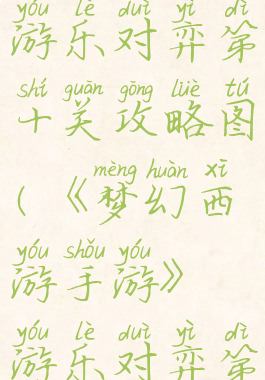 yóu lè duì yì dì
游乐对弈第
shí guān gōng lüè tú
十关攻略图
mèng huàn xī
(《梦幻西
yóu shǒu yóu
游手游》
yóu lè duì yì dì
游乐对弈第